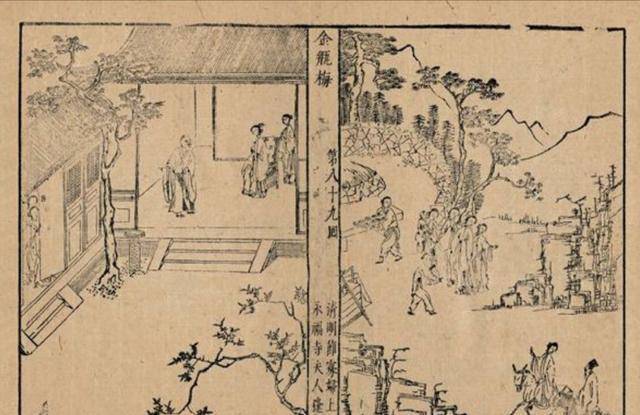 金瓶梅
第八十九囘
清明節寡婦上
永福寺夫人逢